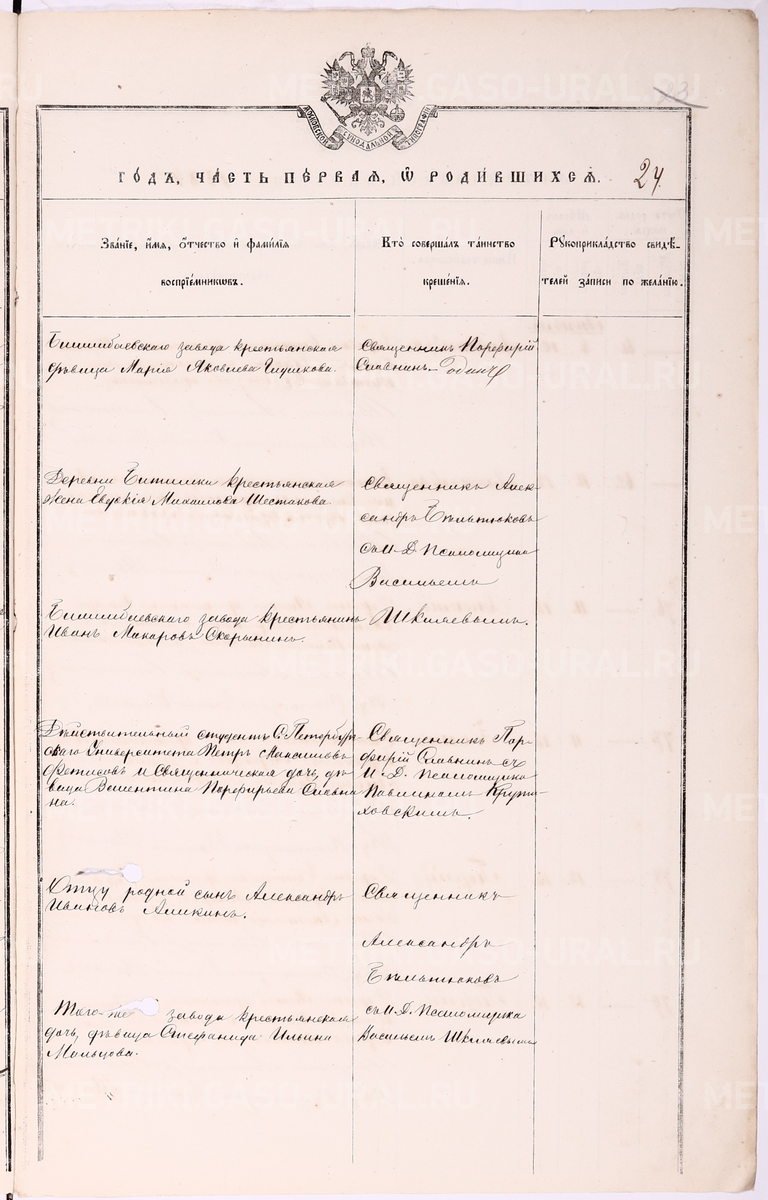 МОСКОВСКОЙ СѴНОДАЛЬНОЙ ТИПОГРАФІИ
ГО́ДЪ, ЧА́СТЬ ПЕ́РВАЯ, Ѽ РОДИ́ВШИХСЯ. 24.
Зва́нїе, и́мя, ѻ́тчество и фами́лїя
воспрїе́мниковъ.
Кто̀ соверша́лъ та́инство
креще́нїя.
Рꙋкоприкла́дство свидѣ́-
телей за́писи по жела́нїю.
Билимбаевскаго завода крестьянская
дѣвица Марія Яковлева Глушкова.
Священникъ Порфирій
Славнинъ - Одинъ
Деревни Битимки крестьянская
жена Евдокія Михаилова Шестакова.
Священникъ Алек-
сандръ Бѣльтюковъ
съ И. Д. Псаломщика
Васильемъ
Шкляевымъ.
Билимбаевскаго завода крестьянинъ
Иванъ Макаровъ Скорынинъ.
Дѣйствительный студентъ С. Петербург-
скаго Университета Петръ Максимовъ
Фетисовъ и Священническая дочь, дѣ-
вица Валентина Порфирьева Славни-
на.
Священникъ Пор-
фирій Славнинъ съ
И. Д. Псаломщика
Павломъ
Отцу родной сынъ Александръ
Ивановъ Аликинъ.
Священникъ
Александръ
Бѣльтюковъ
съ И. Д. Псаломщика
Васильемъ Шкляевымъ
Того-же завода крестьянская
дочь, дѣвица Стефанида Ильина
Мальцова.
METRIKI.GASO-URAL.RU